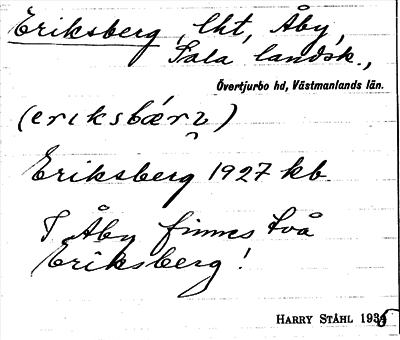 Eriksberg, lht, Åby,
Sala landsk.,
Övertjurbo hd, Västmanlands län.
(eriksbǽrꝛ̯)
Eriksberg 1927 kb.
I Åby finnes två
Eriksberg!
HARRY STÅHL 1935